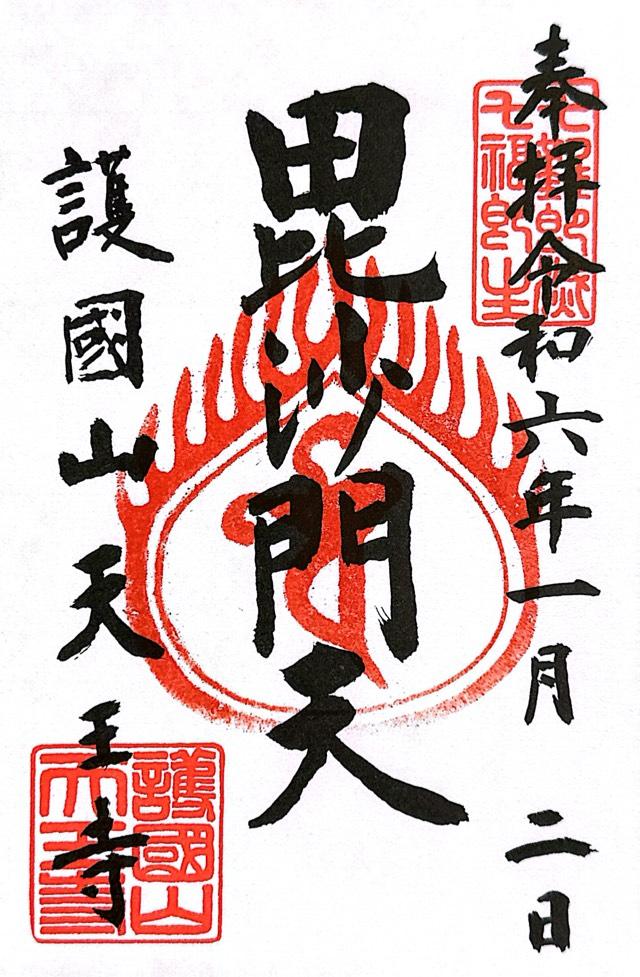 奉拝令和六年一月二日
毘沙門天
護國山天王寺
七福即生
護國山
天王寺